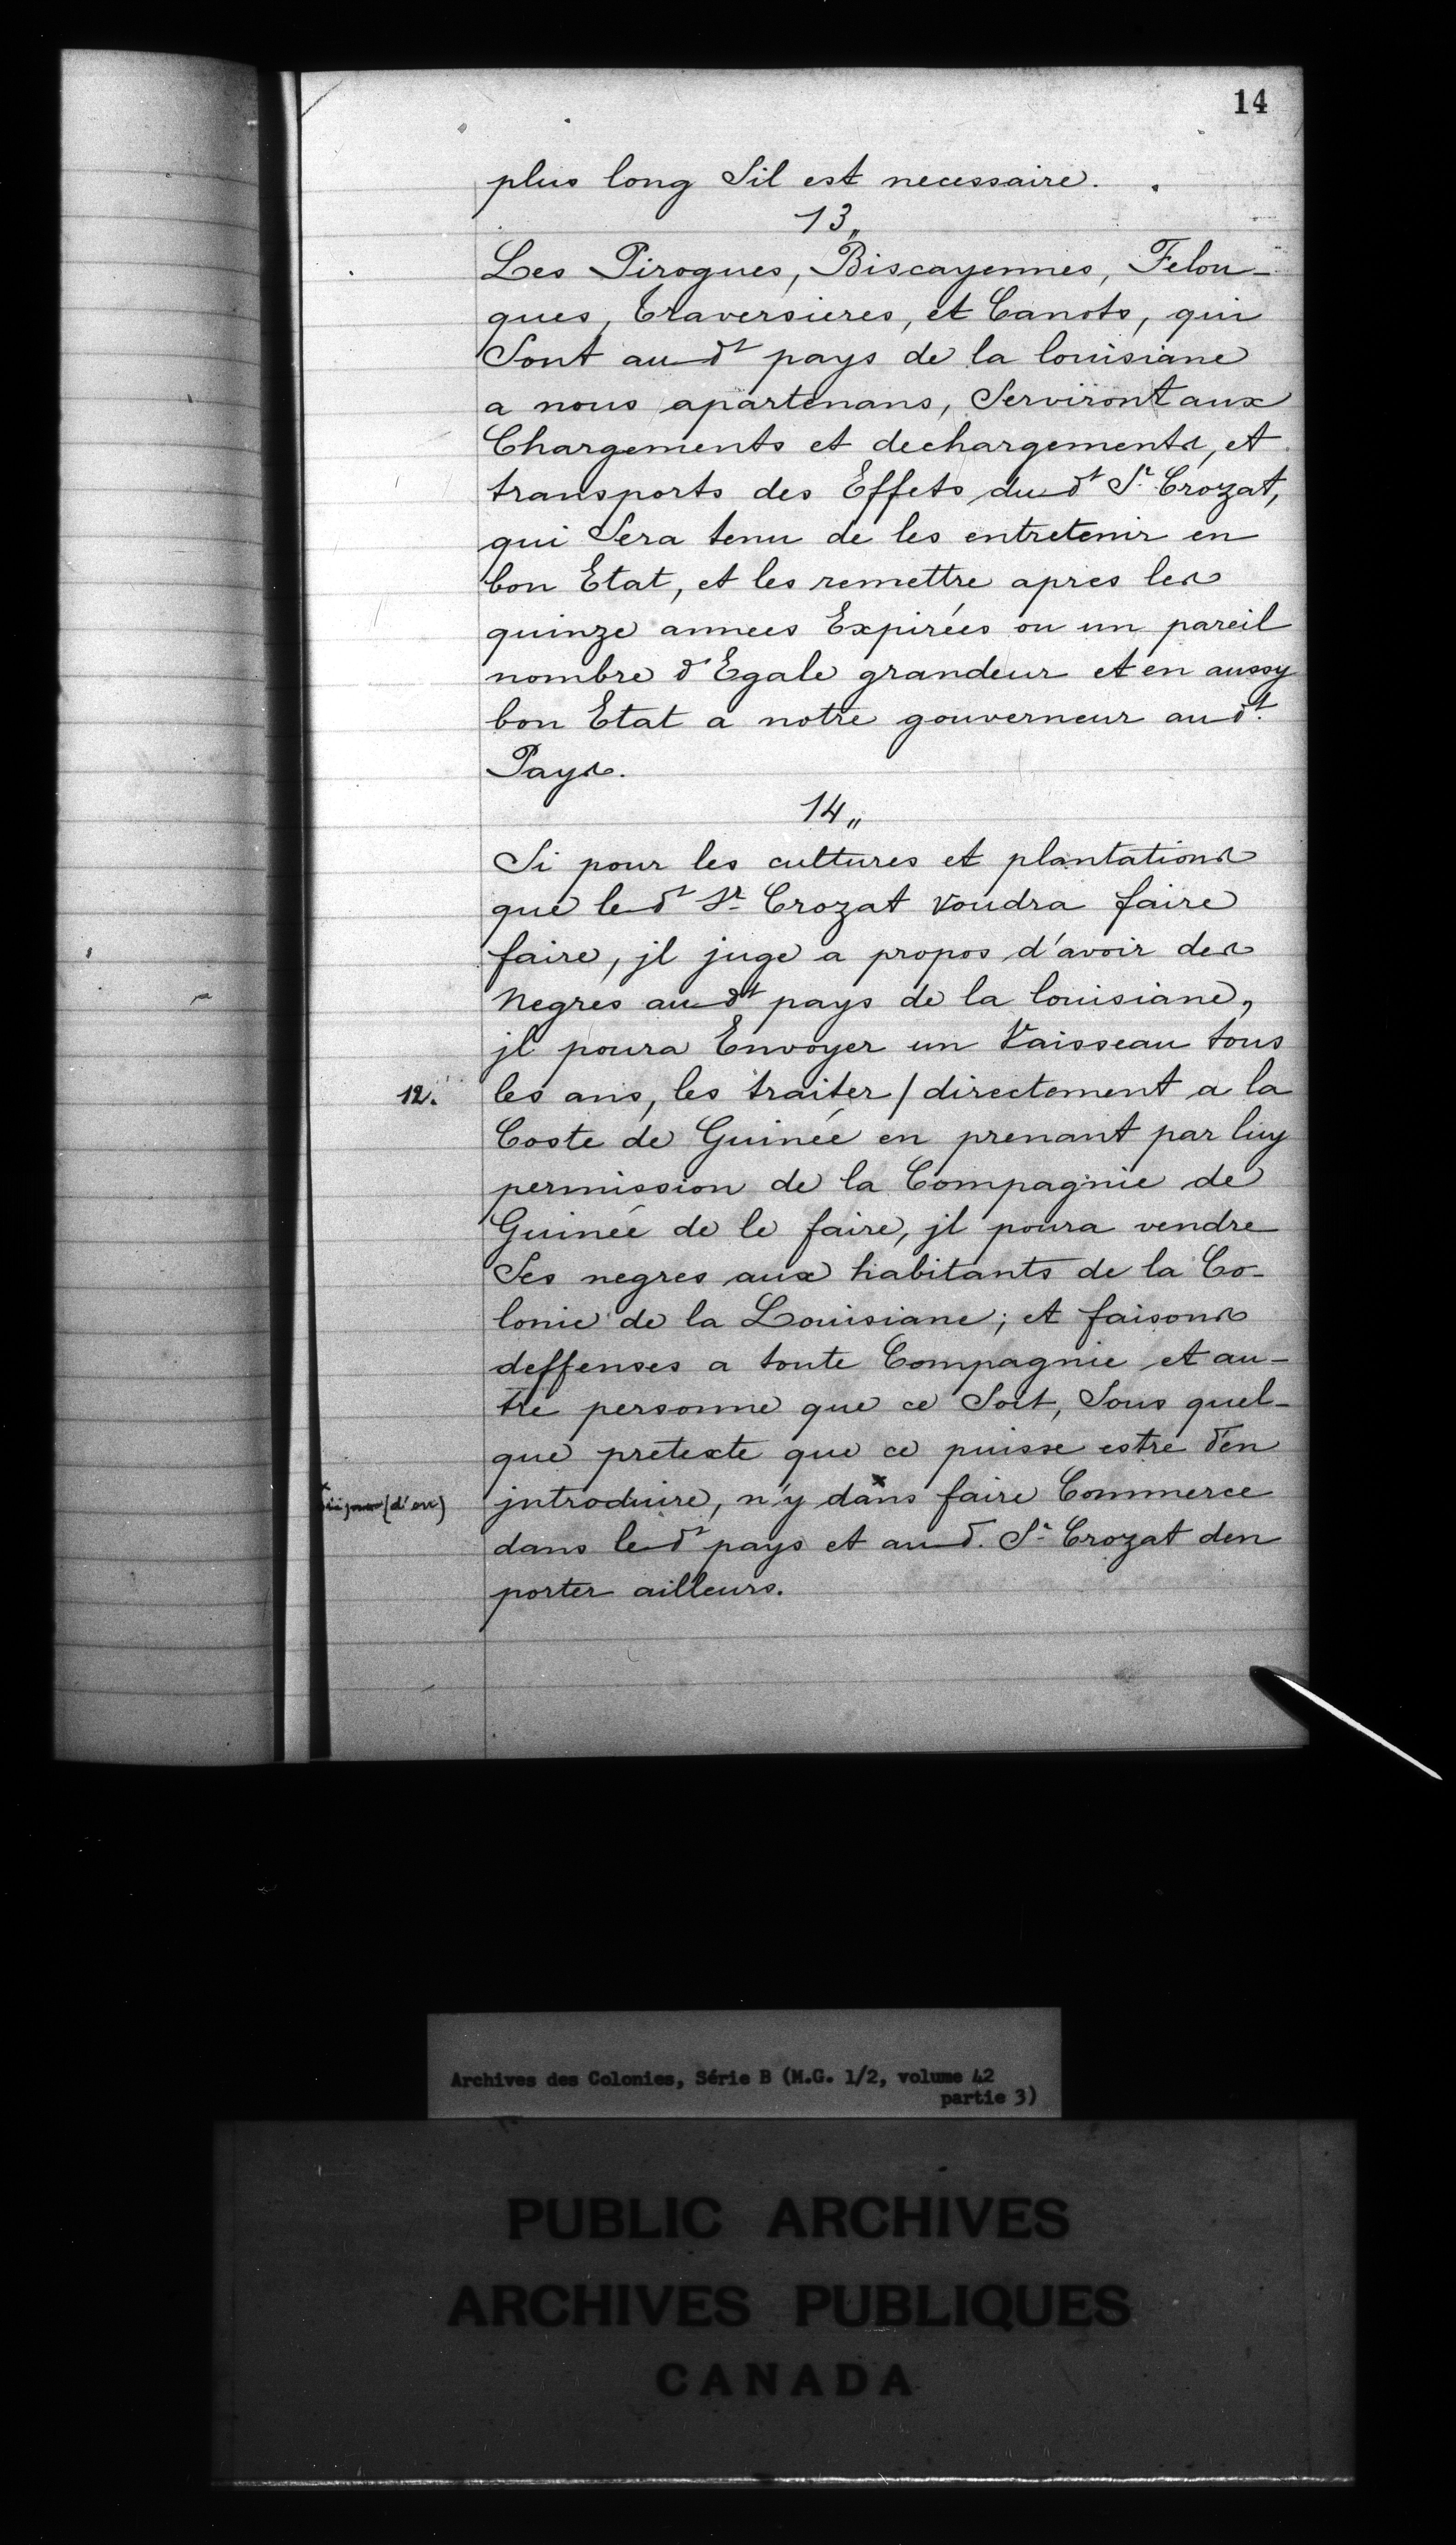 14
plus long Sil est necessaire.
13„
Les Pirogues, Biscayennes, Felou-
ques, traversieres, et Canots, qui
Sont au dt pays de la louisiane
a nous apartenans, Serviront aux
Chargements et dechargements, et
transports des Effets du dt Sr Crozat,
qui Sera tenu de les entretenir en
bon Etat, et les remettre apres les
quinze annees Expirées ou un pareil
nombre d'Egale grandeur et en aussy
bon Etat a notre gouverneur au dt.
Pays.
14„
Si pour les cultures et plantations
que le dt Sr Crozat voudra faire
faire, jl juge a propos d'avoir des
Negres au dt pays de la louisiane,
jl poura Envoyer un Vaisseau tous
12. les ans, les traiter / directement a la
Coste de Guinée en prenant par luy
permission de la Compagnie de
Guinée de le faire, jl poura vendre
Ses negres aux habitants de la Co-
lonie de la Louisiane; et faisons
deffenses a toute Compagnie et au-
tre personne que ce Soit, Sous quel-
que pretexte que ce puisse estre d'en
(d'en) jntroduire, n'y dans x faire Commerce
dans le dt pays et au d. Sr Crozat den
porter ailleurs.
Archives des Colonies, Série B (M.G. 1/2, volume 42
partie 3)
PUBLIC ARCHIVES
ARCHIVES PUBLIQUES
CANADA